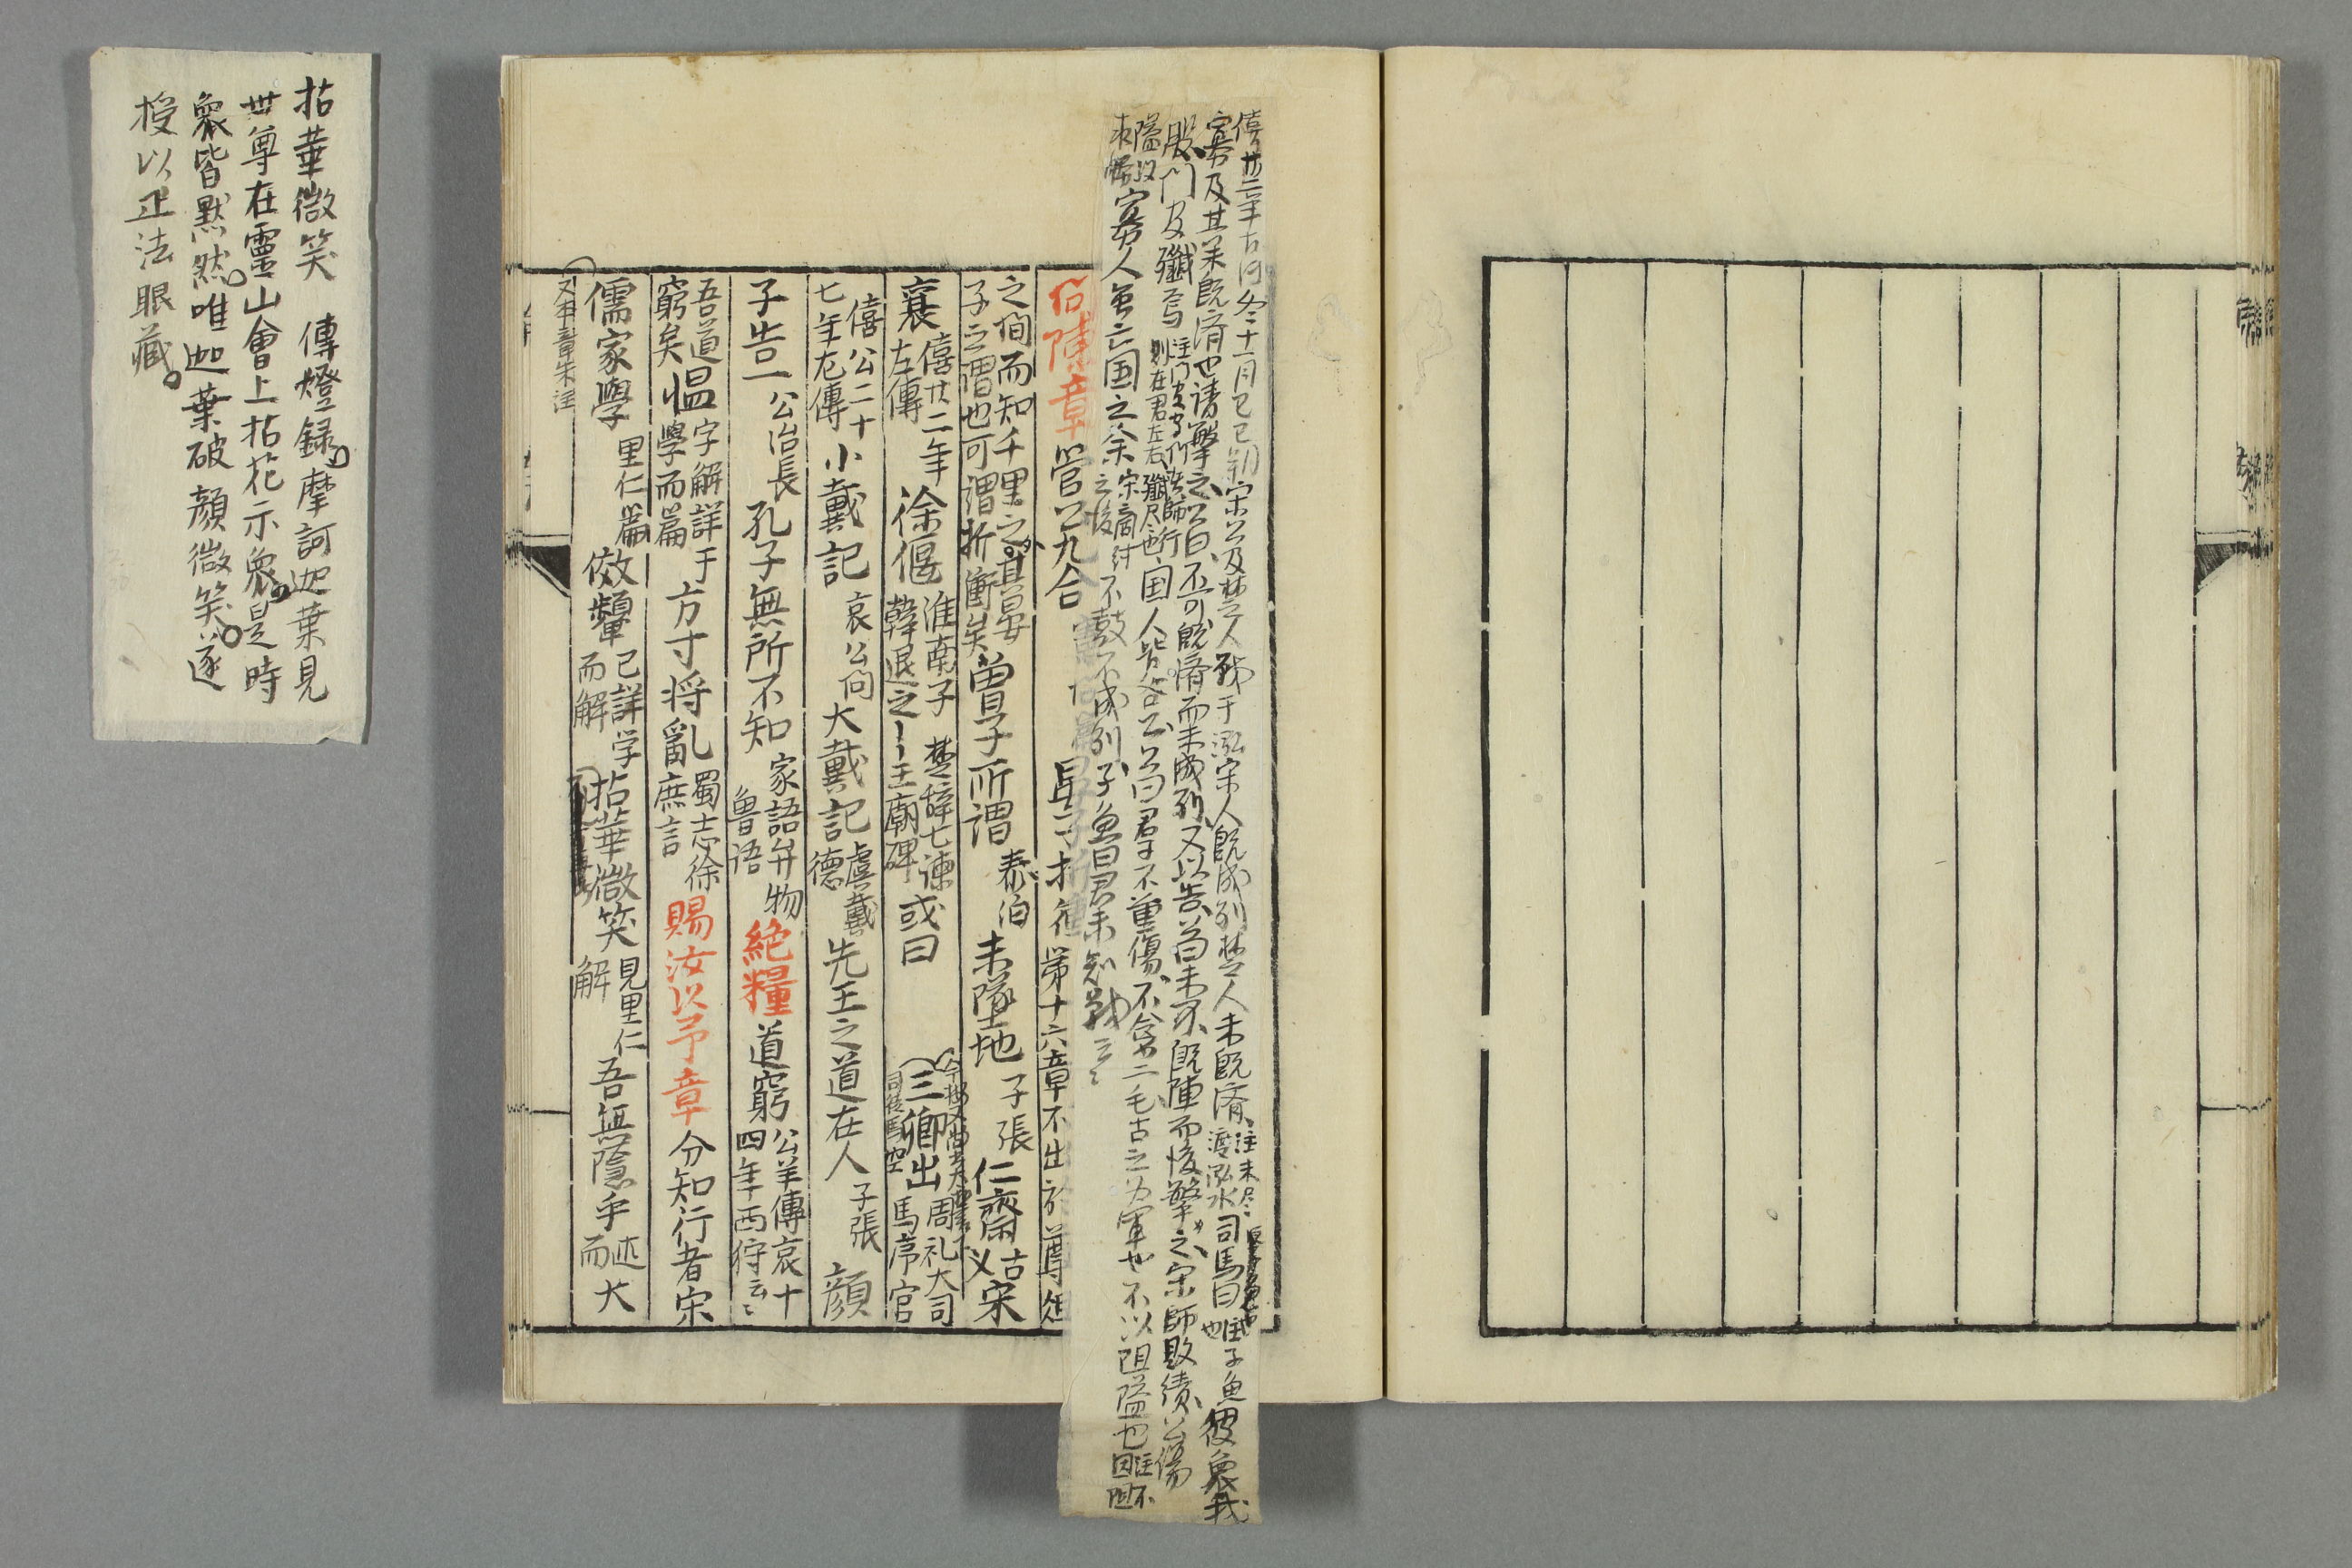 僖廿二年左傳冬十一月己巳朔宋公及楚人戰于泓宋人既成列楚人未既濟注未尽渡泓水司馬曰注子魚也子魚彼衆我
寡及其未既済也请擊之公曰不可既濟而未成列又以告公曰未可既陣而後擊之宋師敗績公傷
股門官殲焉注門官守門者師行則在君左右殲尽也国人皆咎公公曰君子不重傷不禽二毛古之为軍也不以阻隘也注不因阻
隘以求勝寡人虽亡国之余宋商紂之後不鼓不成列子魚曰君未知戦云〻
問陳章 管公九合 晏子折衝 第十六章不出於尊俎
之間而知千里之外其晏子之謂也可謂折衝矣 曽子所謂 泰伯 未墜地 子張 仁齋 古义 宋
襄 僖廿二年左傳 徐偃 淮南子 楚辞七諫 韓退之〻王廟碑 或曰 三卿出 周礼大司馬序官
僖公二十七年左傳 小戴記 哀公问 大戴記 虞戴德 先王之道在人 子張 顔
子告一 公冶長 孔子無所不知 家語弁物 魯语 絶糧 道窮 公羊傳哀十四年西狩云〻
吾道窮矣 慍 字解詳于學而篇 方寸将亂 蜀志徐庶言 賜汝以予章 分知行者宋
儒家學 里仁篇 傚顰 已詳学而解 拈華微笑 見里仁解 吾無隱乎 述而 大
拈華微笑 傳燈録摩訶迦葉見
世尊在靈山會上拈花示衆是時
衆皆黙然唯迦葉破顔微笑遂
授以正法眼藏